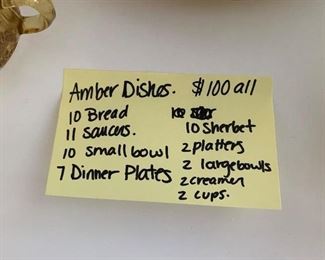 Amber Dishes. $100 all
10 Bread
11 saucers.
10 small bowl
7 Dinner Plates
10 sherbet
2 platters
2 large bowls
2 creamer
2 cups.